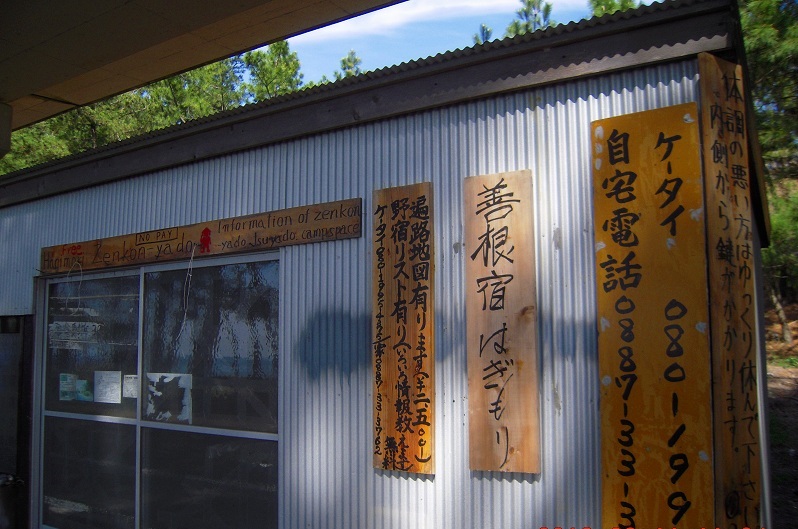 Free
NO PAY
Hagimori Zenkon-yado
Information of zenkon
-yado. tsuyado. campspace
遍路地図有ります
野宿リスト有り(いろいろ情報教えます
無料
善根宿はぎもり
ケータイ 080-199
自宅電話0887-33-3
体調の悪い方はゆっくり休んで下さい
内側から鍵かかります。